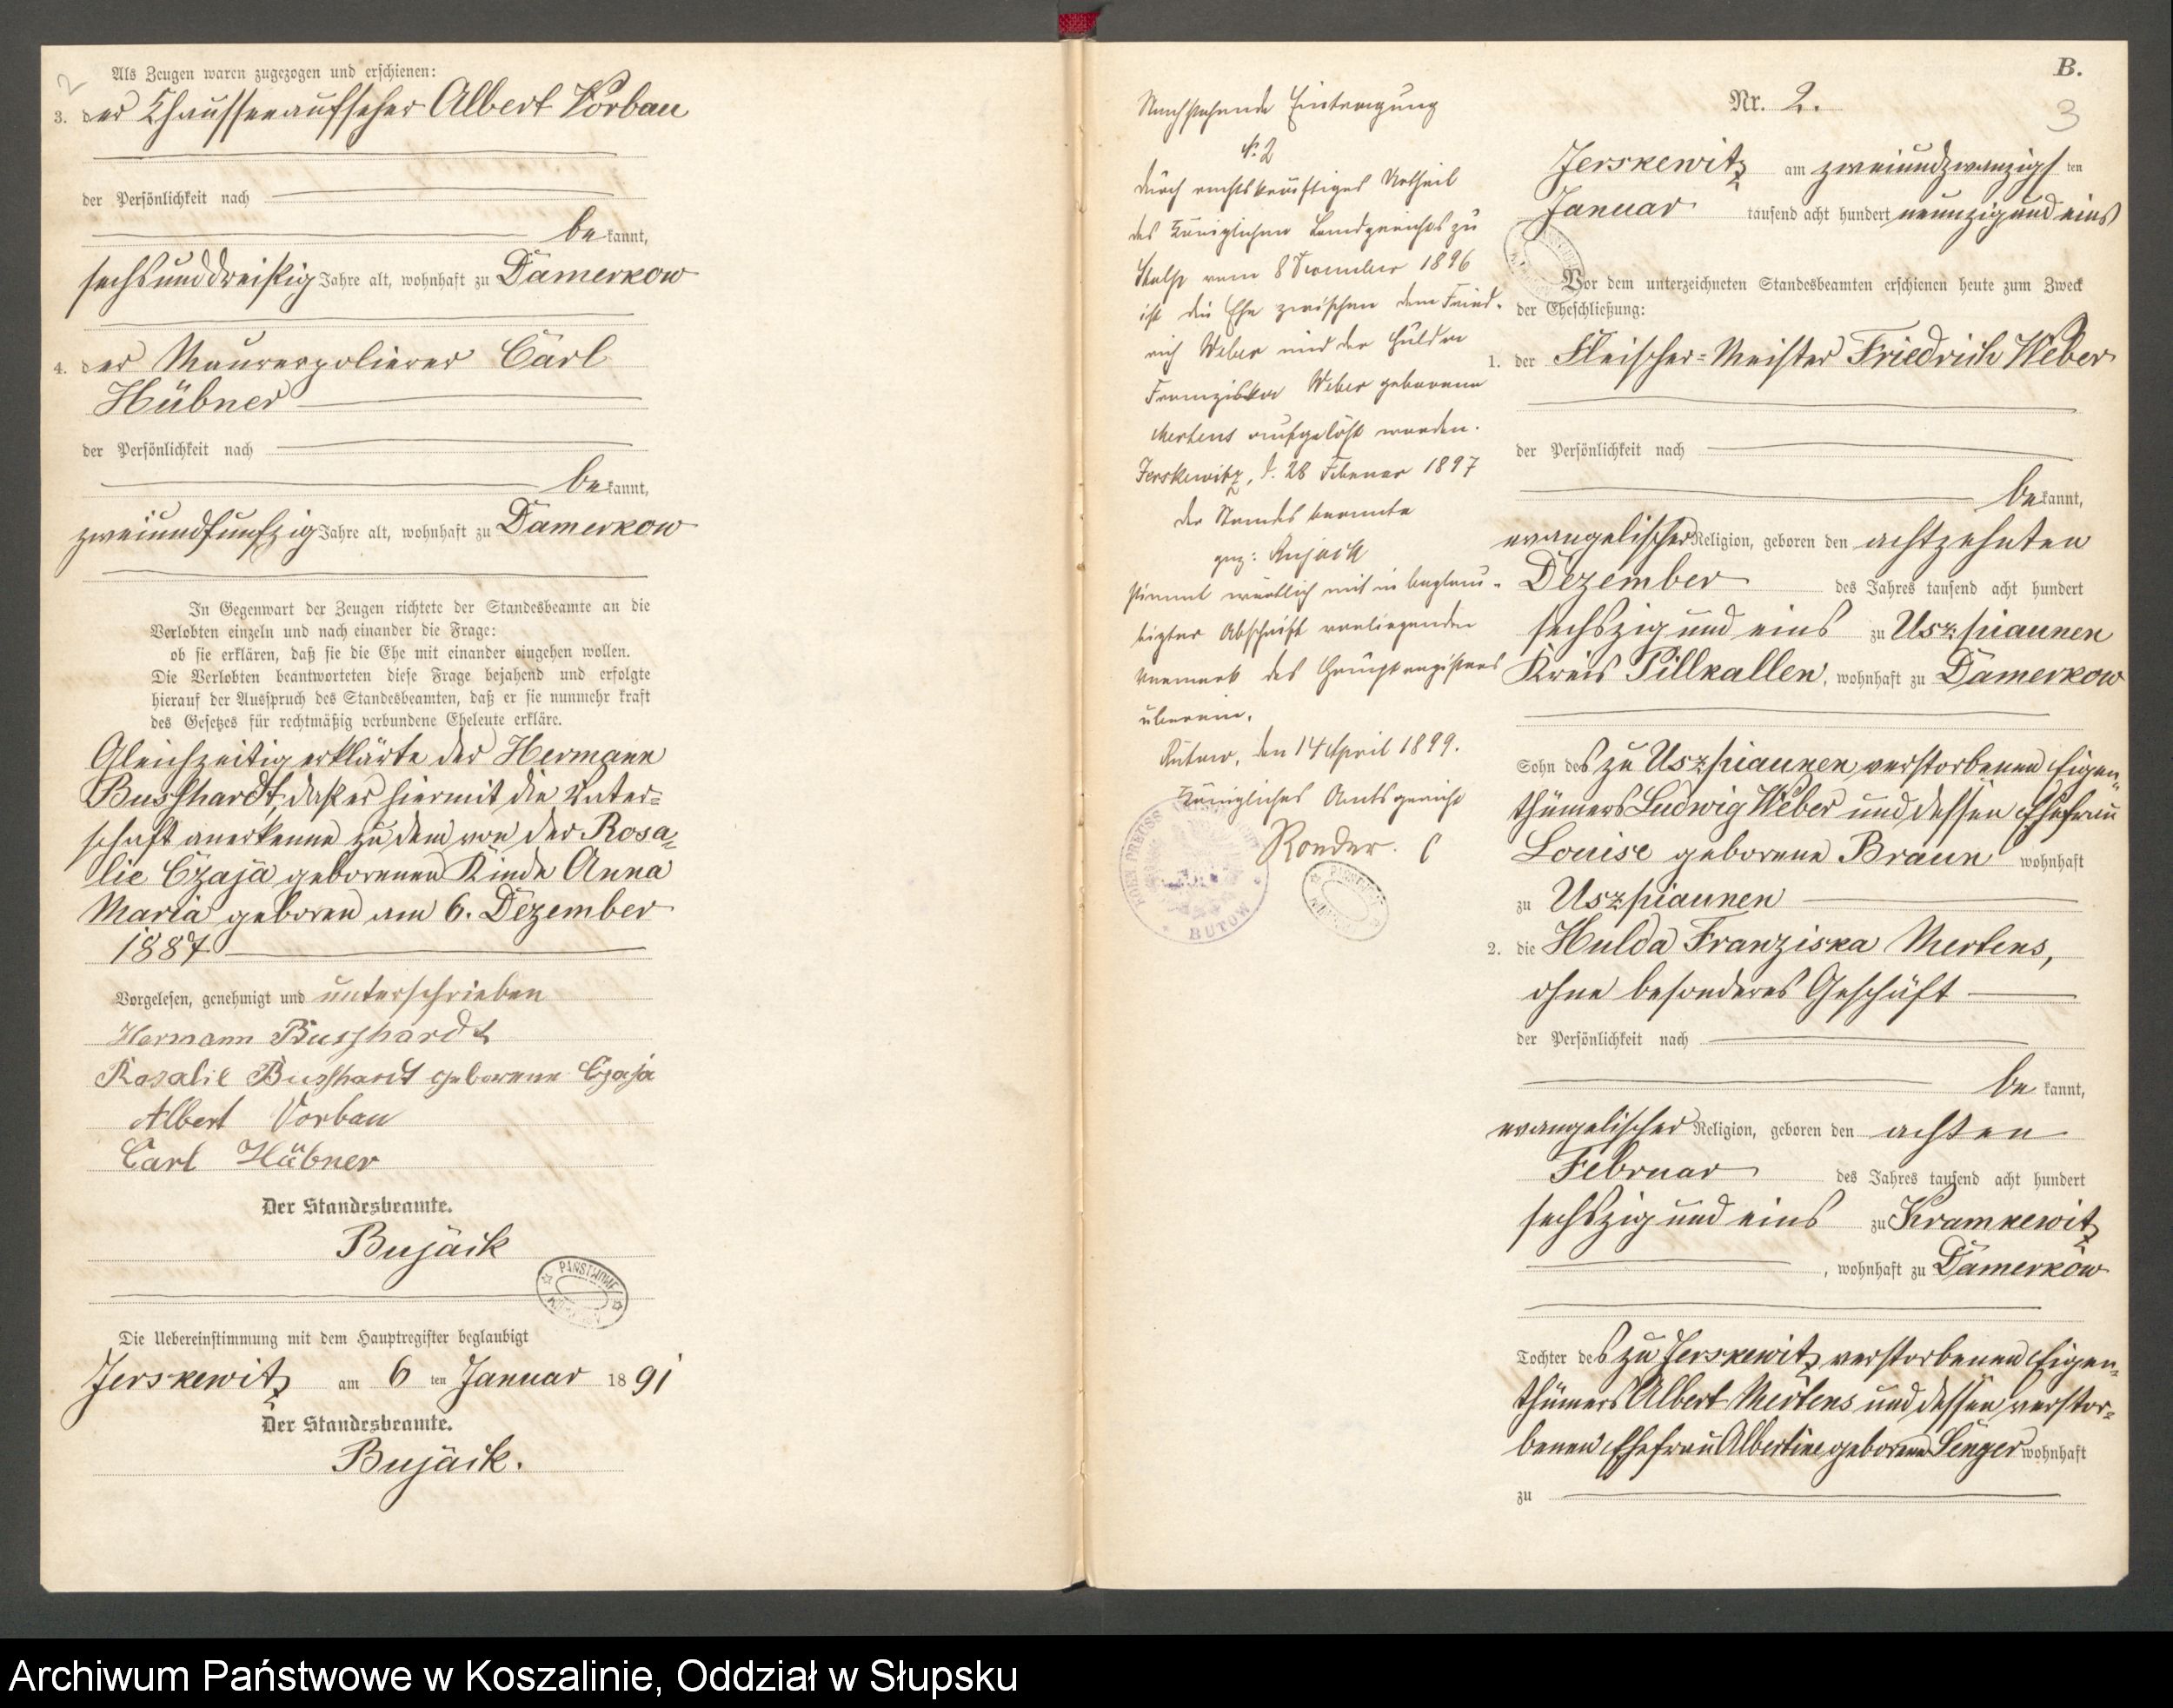 2
Als Zeugen waren zugezogen und erschienen:
3. der Chausseeaufseher Albert Vorbau
der Persönlichkeit nach
bekannt,
sechsunddreißig Jahre alt, wohnhaft zu Damerkow
4. der Maurerpolierer Carl
Hübner
der Persönlichkeit nach
bekannt,
zweiundfunfzig Jahre alt, wohnhaft zu Damerkow
In Gegenwart der Zeugen richtete der Standesbeamte an die
Verlobten einzeln und nach einander die Frage:
ob sie erklären, daß sie die Ehe mit einander eingehen wollen.
Die Verlobten beantworteten diese Frage bejahend und erfolgte
hierauf der Ausspruch des Standesbeamten, daß er sie nunmehr kraft
des Gesetzes für rechtmäßig verbundene Eheleute erkläre.
Gleichzeitig erklärte der Hermann
Busshardt, daß er hiermit die Vater=
schaft anerkenne zu dem von der Rosa=
lie Czaja geborenen Kinde Anna
Maria geboren am 6. Dezember
1887.
Vorgelesen, genehmigt und unterschrieben
Hermann Busshardt
Rosalie Busshardt geborene Czaja
Albert Vorbau
Carl Hübner
Der Standesbeamte.
Bujäck
PAŃSTWOWE
Die Uebereinstimmung mit dem Hauptregister beglaubigt
Jerskewitz am 6 ten Januar 1891
Der Standesbeamte.
Bujäck.
Nachstehende Eintragung
№ 2
durch rechtskräftiges Urtheil
des Königlichen Landgerichts zu
Stolp vom 8 Dezember 1896
ist die Ehe zwischen dem Fried-
rich Weber und der Hulda
Franziska Weber geborene
Mertens aufgelöst worden.
Jerskewitz, d. 28 Februar 1897
der Standesbeamte
gez: Bujack
stimmt wörtlich mit in beglau-
bigter Abschrift vorliegenden
Vermerk des Hauptregisters
überein.
Bütow, den 14 April 1899.
Königliches Amtsgericht
BUTOW
B.
3
Nr. 2.
Jerskewitz am zweiundzwanzigsten
Januar tausend acht hundert neunzig und eins
Vor dem unterzeichneten Standesbeamten erschienen heute zum Zweck
der Eheschließung:
1. der Fleischer=Meister Friedrich Weber
der Persönlichkeit nach
bekannt,
evangelischer Religion, geboren den achtzehnten
Dezember des Jahres tausend acht hundert
sechszig und eins zu Uszpiaunen
Kreis Pillkallen, wohnhaft zu Damerkow
Sohn des zu Uszpiaunen verstorbenen Eigen=
thümers Ludwig Weber und dessen Ehefrau
Louise geborene Braun wohnhaft
zu Uszpiaunen
2. die Hulda Franziska Mertens,
ohne besonderes Geschäft
der Persönlichkeit nach
bekannt,
evangelischer Religion, geboren den achten
Februar des Jahres tausend acht hundert
sechszig und eins zu Kramkewitz
, wohnhaft zu Damerkow
Tochter des zu Jerskewitz verstorbenen Eigen=
thümers Albert Mertens und dessen verstor=
benen Ehefrau Albertine geborene Senger wohnhaft
zu
Archiwum Państwowe w Koszalinie, Oddział w Słupsku